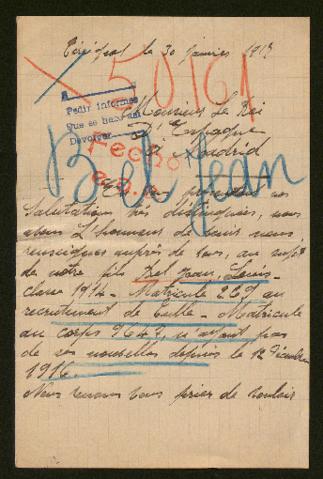 le 30 janvier 1917
50161
A
Pedir informes
Que se han
Devolver
Monsieur Le Roi
d'Espagne
Fecho
à Madrid
Bel Jean
En vous présentant nos
salutations très distinguées, nous
avons l'honneur de venir nous
renseigner auprès de vous, au sujet
de notre fils Bel Jean, Louis-
classe 1914 - Matricule 269 au
recrutement de Tulle - Matricule
au corps 9642, n'ayant pas
de ses nouvelles depuis le 12 Décembre
1916.
Nous venons vous prier de vouloir